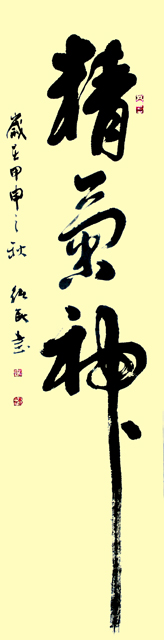 精氣神
歲在甲申之秋 紹民書